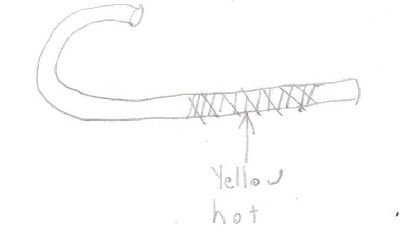 Yellow
hot